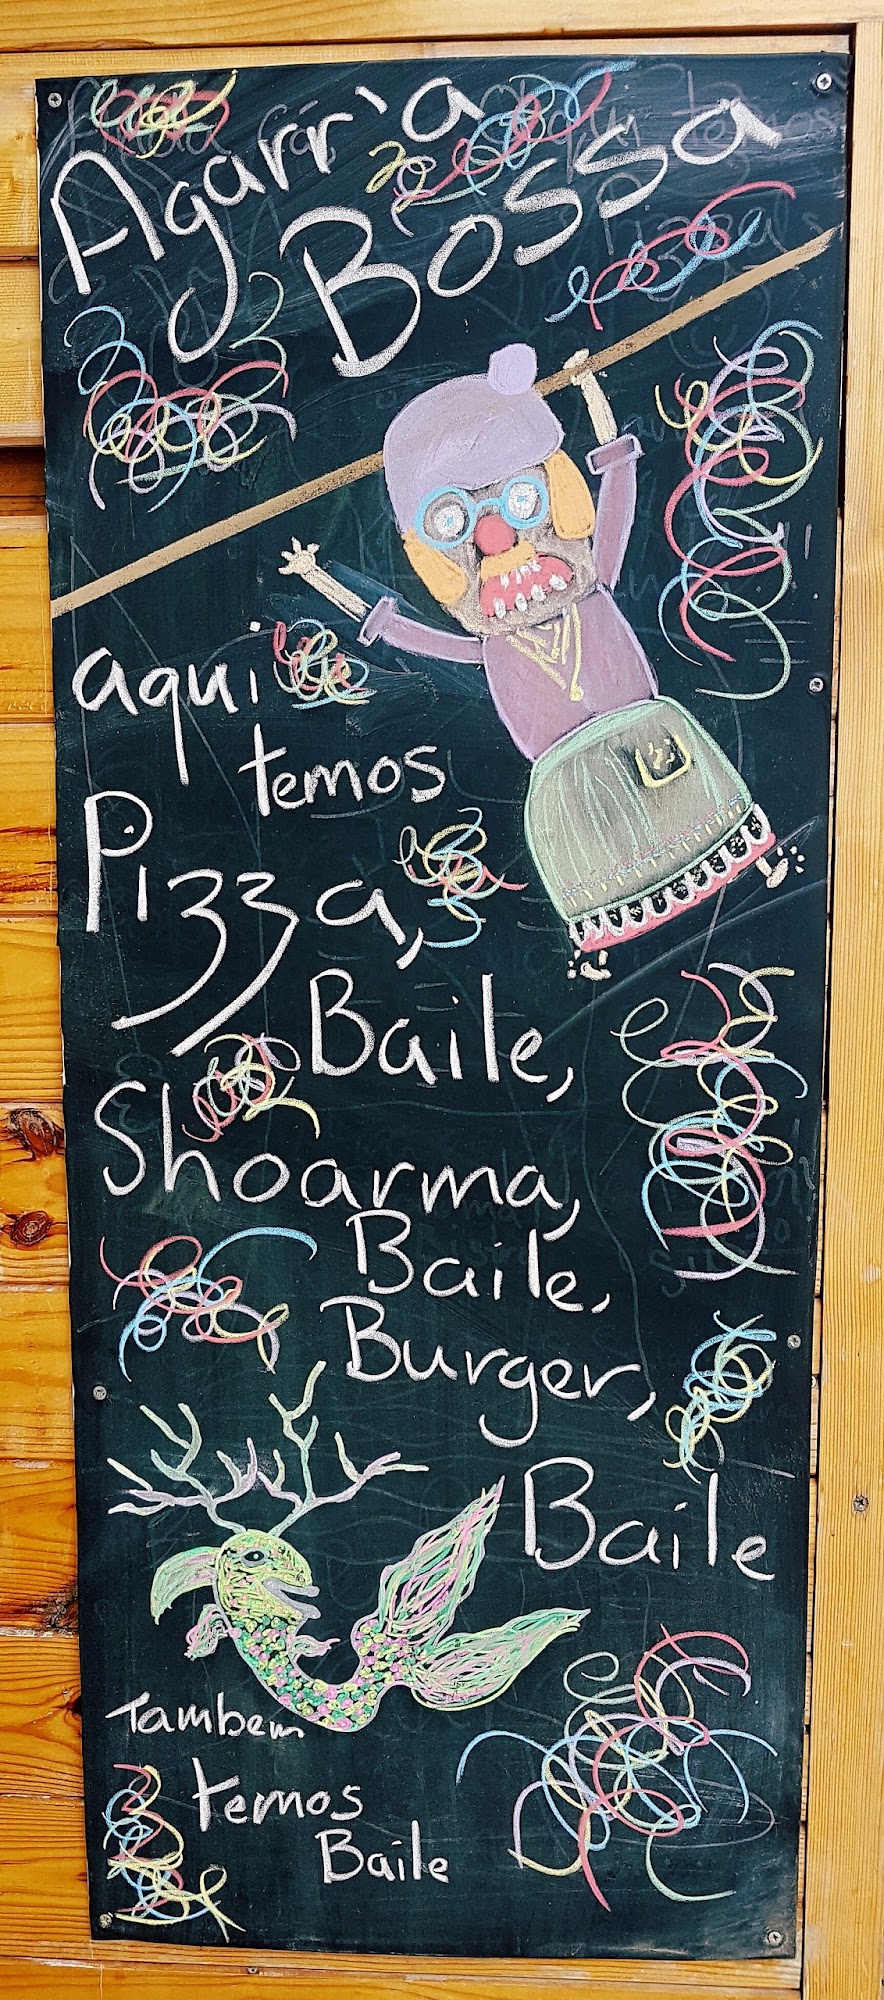 Agarr'a
Bossa
aqui
temos
Pizza,
Baile,
Shoarma,
Baile,
Burger,
Baile
Tambem
temos
Baile